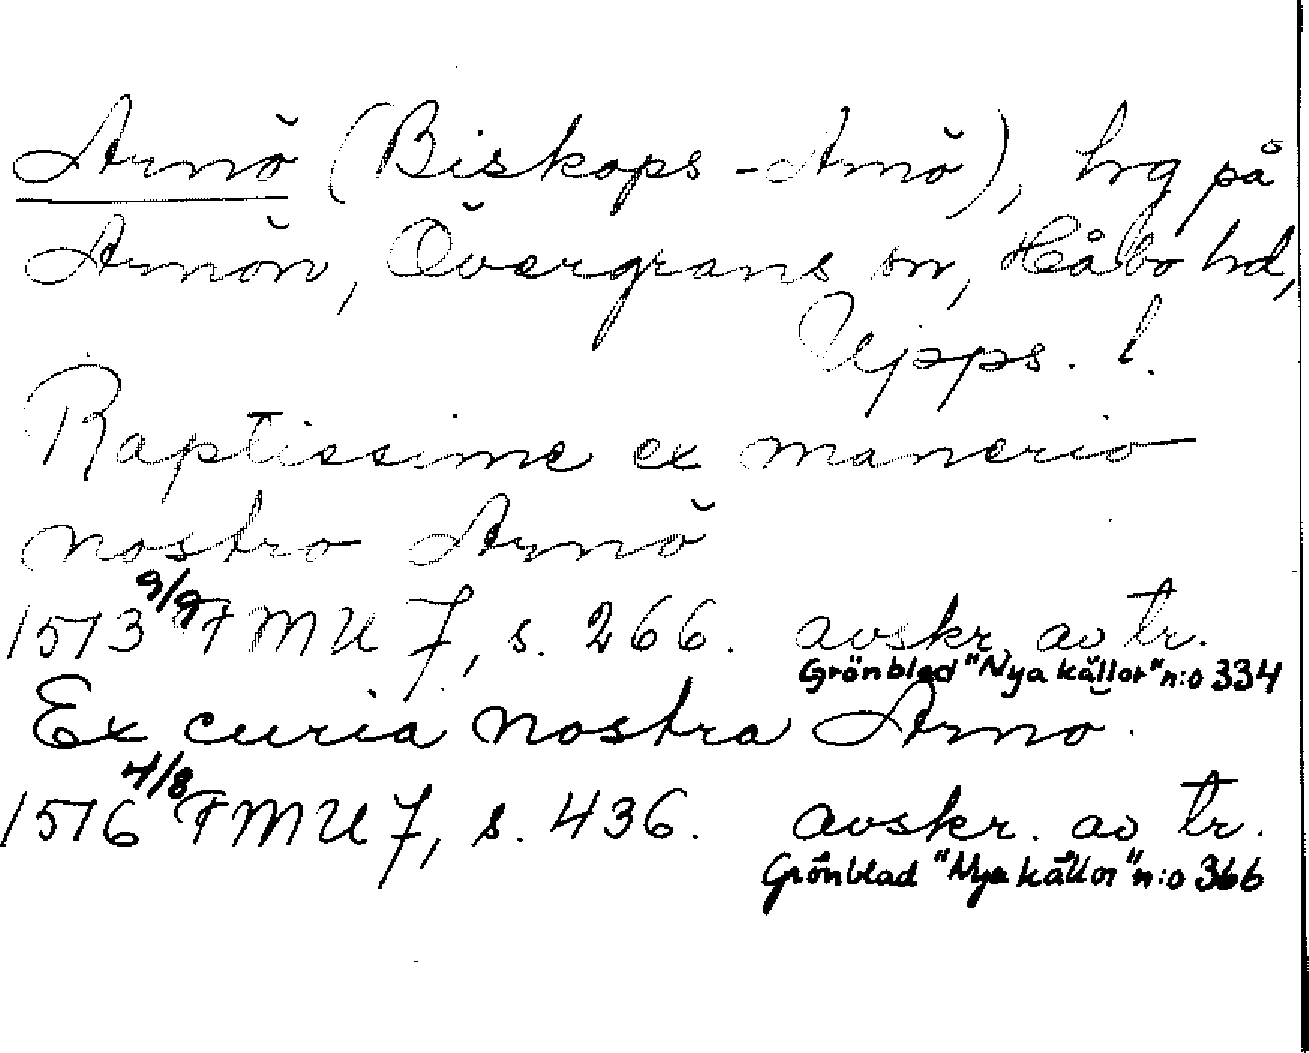 Arnö (Biskops-Arnö), hrg på
Arnön, Övergrans sn, Håbo hd,
Upps. l.
Raptissime ex manerio
nostro Arnö
1513 9/9 FMU 7, s. 266. avskr. av tr.
Grönblad "Nya källor" n:o 334
Ex curia nostra Arnö.
1516 4/8 FMU 7, s. 436. avskr. av tr.
Grönblad "Nya källor" n:o 366